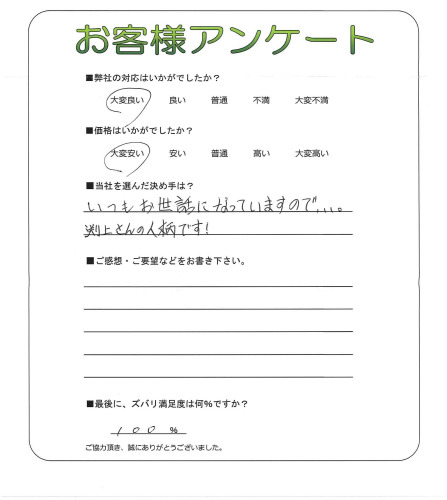 お客様アンケート
■弊社の対応はいかがでしたか？
大変良い 良い 普通 不満 大変不満
■価格はいかがでしたか？
大変安い 安い 普通 高い 大変高い
■当社を選んだ決め手は？
いつもお世話になっていますので、、、。
渕上さんの人柄です！
■ご感想・ご要望などをお書き下さい。
■最後に、ズバリ満足度は何％ですか？
100 %
ご協力頂き、誠にありがとうございました。